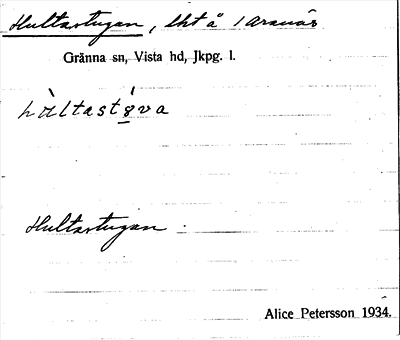 Hultastugan, lht å 1 Aranäs
Gränna sn, Vista hd, Jkpg. l.
hùltastúva
Hultastugan
Alice Petersson 1934.